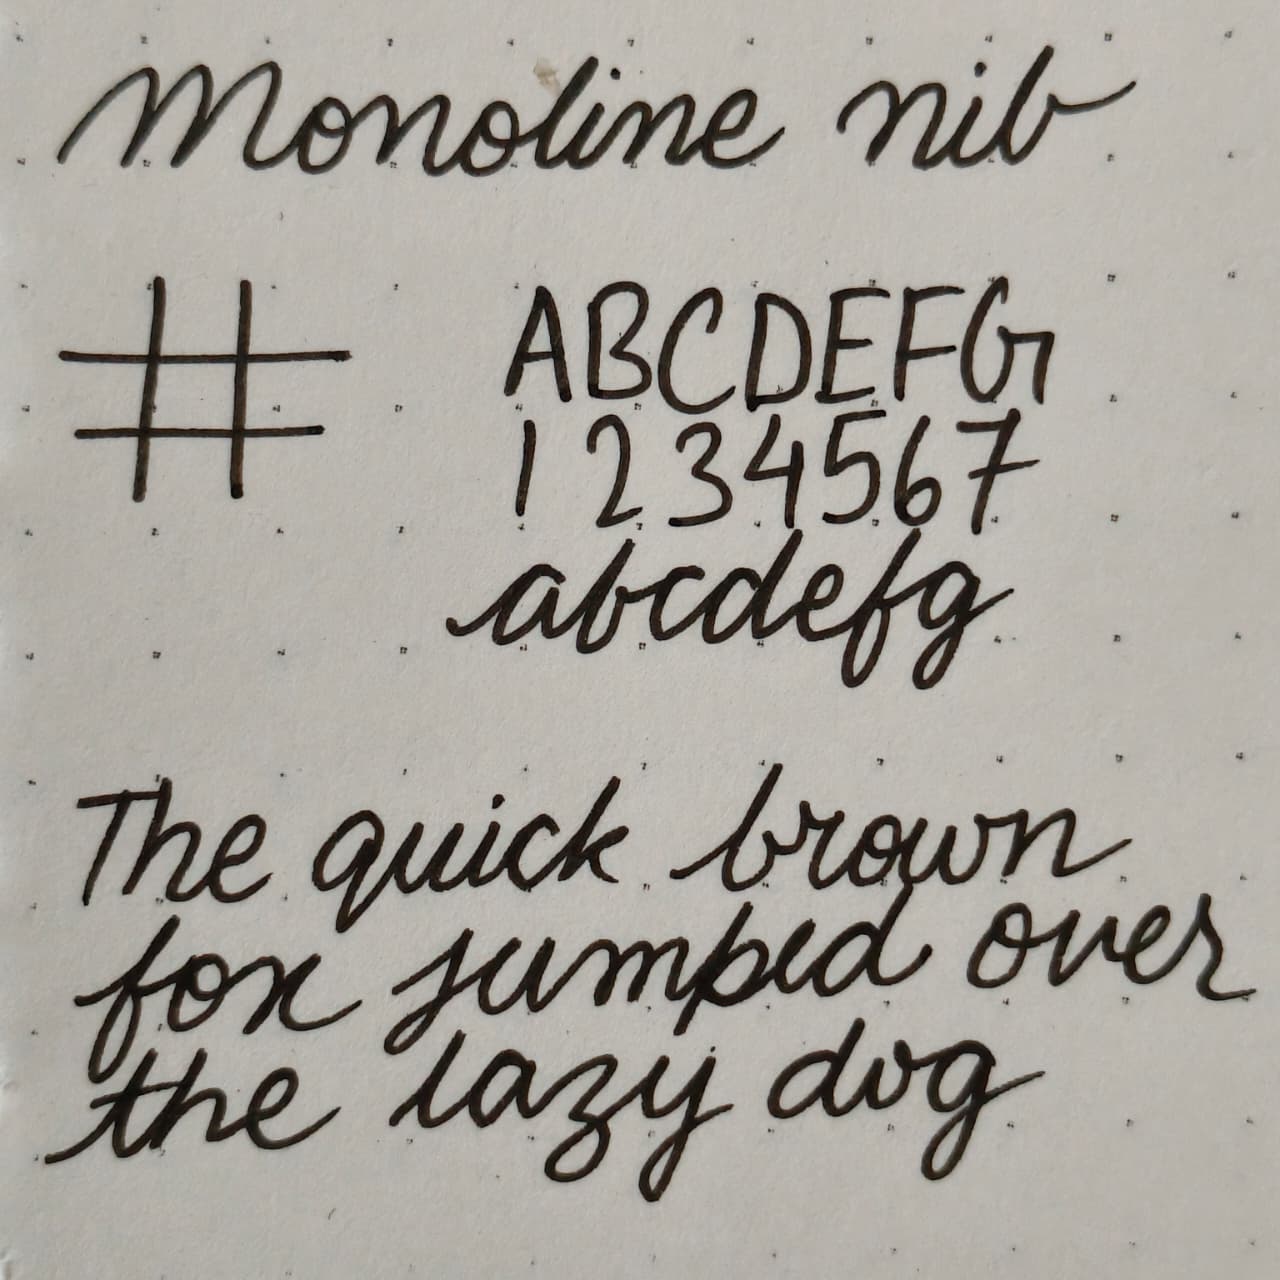 Monoline nib
#
ABCDEFG
1234567
abcdefg
The quick brown
fox jumped over
the lazy dog